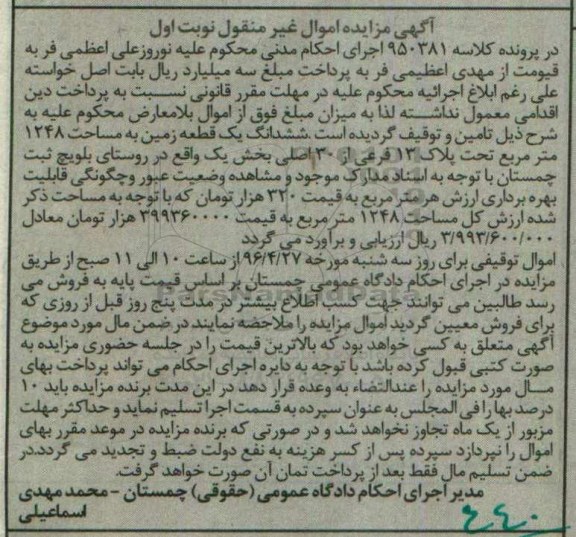 آگهی مزایده اموال غیر منقول نوبت اول
در پرونده کلاسه ۹۵۰۳۸۱ اجرای احکام مدنی محکوم علیه نوروزعلی اعظمی فر به
قیومت از مهدی اعظیمی فر به پرداخت مبلغ سه میلیارد ریال بابت اصل خواسته
علی رغم ابلاغ اجرائیه محکوم علیه در مهلت مقرر قانونی نسبت به پرداخت دین
اقدامی معمول نداشته لذا به میزان مبلغ فوق از اموال بلامعارض محکوم علیه به
شرح ذیل تامین و توقیف گردیده است .ششدانگ یک قطعه زمین به مساحت ۱۲۴۸
متر مربع تحت پلاک ۱۳ فرعی از ۳۰ اصلی بخش یک واقع در روستای بلویچ ثبت
چمستان با توجه به اسناد مدارک موجود و مشاهده وضعیت عبور وچگونگی قابلیت
بهره برداری ارزش هر متر مربع به قیمت ۳۲۰ هزار تومان که با توجه به مساحت ذکر
شده ارزش کل مساحت ۱۲۴۸ متر مربع به قیمت ۳۹۹۳۶۰۰۰۰ هزار تومان معادل
۳/۹۹۳/۶۰۰/۰۰۰ ریال ارزیابی و برآورد می گردد
اموال توقیفی برای روز سه شنبه مورخه ۹۶/۴/۲۷ از ساعت ۱۰ الی ۱۱ صبح از طریق
مزایده در اجرای احکام دادگاه عمومی چمستان بر اساس قیمت پایه به فروش می
رسد طالبین می توانند جهت کسب اطلاع بیشتر در مدت پنج روز قبل از روزی که
برای فروش معیین گردید اموال مزایده را ملاحضه نمایند در ضمن مال مورد موضوع
آگهی متعلق به کسی خواهد بود که بالاترین قیمت را در جلسه حضوری مزایده به
صورت کتبی قبول کرده باشد با توجه به دایره اجرای احکام می تواند پرداخت بهای
مال مورد مزایده را عندالتضاء به وعده قرار دهد در این مدت برنده مزایده باید ۱۰
درصد بها را فی المجلس به عنوان سپرده به قسمت اجرا تسلیم نماید و حداکثر مهلت
مزبور از یک ماه تجاوز نخواهد شد و در صورتی که برنده مزایده در موعد مقرر بهای
اموال را نپردازد سپرده پس از کسر هزینه به نفع دولت ضبط و تجدید می گردد.در
ضمن تسلیم مال فقط بعد از پرداخت تمان آن صورت خواهد گرفت.
مدیر اجرای احکام دادگاه عمومی (حقوقی) چمستان - محمد مهدی
اسماعیلی